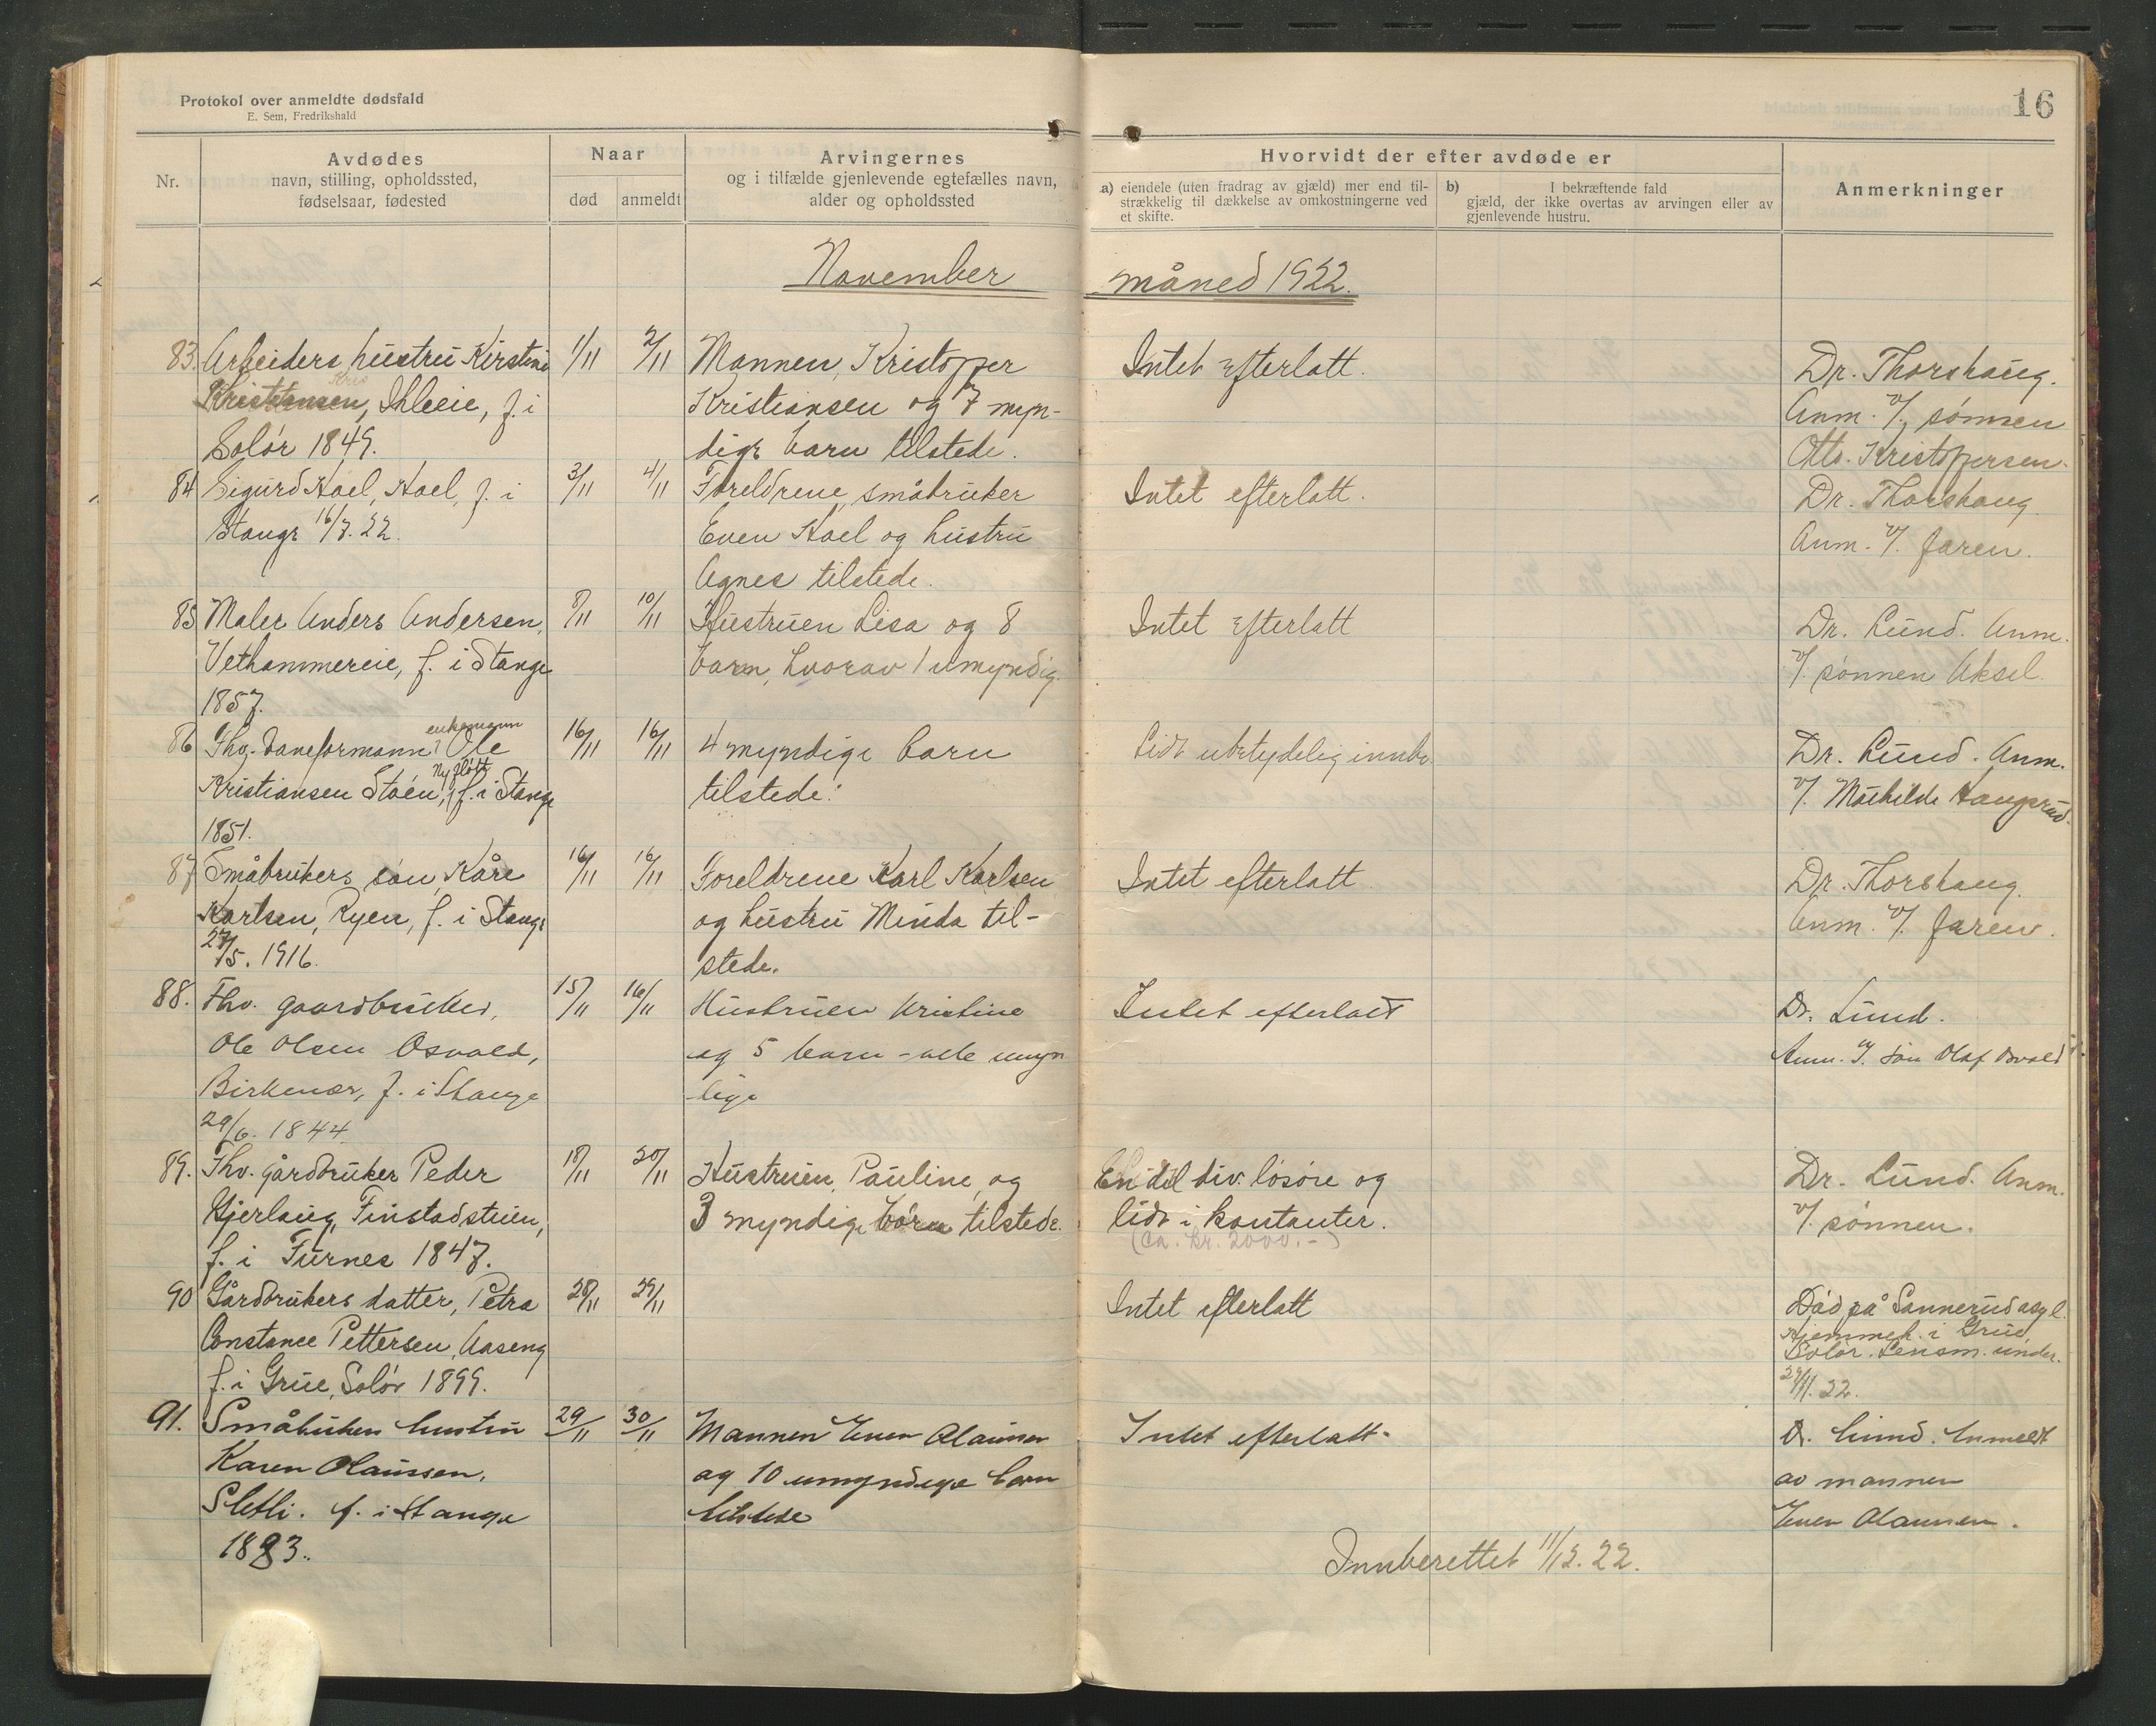 Protokol over anmeldte dødsfald
E. Sem, Fredrikshald
16
Nr.
Avdødes
navn, stilling, opholdssted,
fødselsaar, fødested
Naar
død
anmeldt
Arvingernes
og i tilfælde gjenlevende egtefælles navn,
alder og opholdssted
Hvorvidt der efter avdøde er
a) eiendele (uten fradrag av gjæld) mer end til-
strækkelig til dækkelse av omkostningerne ved
et skifte.
b) I bekræftende fald
gjæld, der ikke overtas av arvingen eller av
gjenlevende hustru.
Anmerkninger
November måned 1922.
83. Arbeiders hustru Kirstine
Kristiansen, Ihleeie, f. i
Solør 1849.
1/11
2/11
Mannen, Kristoffer
Kristiansen og 7 myn-
dige barn tilstede.
Intet efterlatt.
Dr. Thorshaug.
Anm. v/. sønnen
Otto Kristoffersen.
84 Sigurd Hoel, Hoel, f. i
Stange 16/7.22.
3/11
4/11
Foreldrene, småbruker
Even Hoel og hustru
Agnes tilstede.
Intet efterlatt.
Dr. Thorshaug
Anm. v/. faren.
85 Maler Anders Andersen,
Vethammereie, f. i Stange
1857.
8/11
10/11
Hustruen Lisa og 8
barn, hvorav 1 umyndig.
Intet efterlatt
Dr. Lund. Anm.
v/. sønnen Aksel.
86 Fhv. baneformann, enkemann Ole
Kristiansen Støen, Nyfløtt f. i Stange
1851.
16/11
16/11
4 myndige barn
tilstede.
Lidt ubetydelig innbo.
Dr. Lund. Anm.
v/. Mathilde Haugsrud.
87 Småbrukers søn, Kåre
Karlsen, Ryen, f. i Stange
27/5. 1916.
16/11
16/11
Foreldrene Karl Karlsen
og hustru Minda til-
stede.
Intet efterlatt
Dr. Thorshaug.
Anm. v/. faren.
88. Fhv. gaardbruker,
Ole Olsen Osvold,
Birkenær, f. i Stange
29/6. 1844.
15/11
16/11
Hustruen Kristine
og 5 barn - alle myn
dige
Intet efterlatt
Dr. Lund.
Anm. v/. søn Olaf Osvold
89. Fhv. gårdbruker Peder
Gjerlaug, Finstadstuen,
f. i Furnes 1847.
18/11
20/11
Hustruen, Pauline, og
3 myndige børn tilstede.
En del div. løsøre og
lidt i kontanter.
(ca. kr. 2000.-)
Dr. Lund. Anm.
v/. sønnen.
90 Gårdbrukers datter, Petra
Constance Pettersen, Aaseng
f. i Grue, Solør 1899.
28/11
29/11
Intet efterlatt
Død på Sannerud asyl.
Hjemmeh. i Grue,
Solør. Lensm. under.
29/11. 22.
91. Småbrukers hustru
Karen Olaussen.
Sletli. f. i Stange
1883.
29/11
30/11
Mannen Even Olaussen
og 10 umyndige barn
tilstede
Intet efterlatt.
Dr. Lund. Anmeldt
av mannen
Even Olaussen.
Innberettet 11/12. 22.